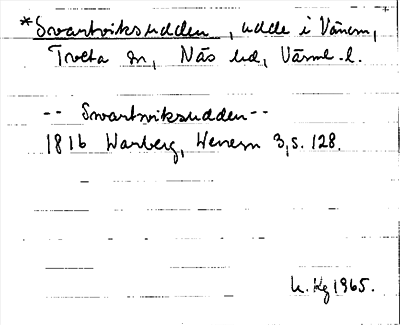 *Svartviksudden, udde i Vänern,
Tveta sn, Näs hd, Värml. l.
-- Svartviksudden --
1816 Warberg, Wenern 3, s. 128.
h. Kg 1965.